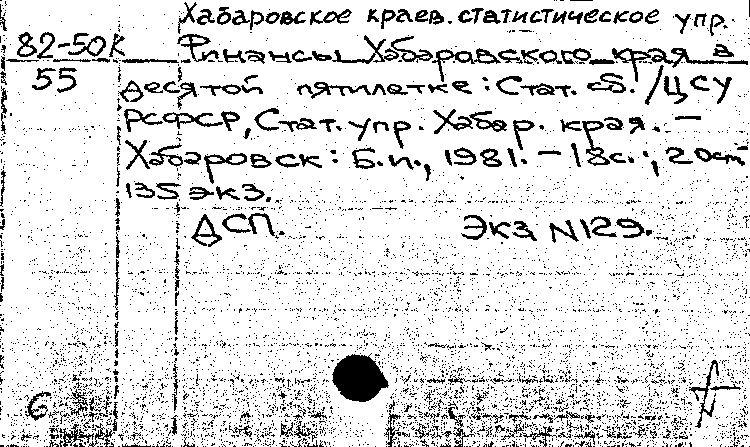 Хабаровское краев. статистическое упр.
82-50к Финансы Хабаровского края в
55 десятой пятилетке: Стат. сб. / ЦСУ
РСФСР, Стат. упр. Хабар. края. —
Хабаровск: Б.и., 1981. — 18с.; 20см
135 экз.
ДСП. Экз N129.
6